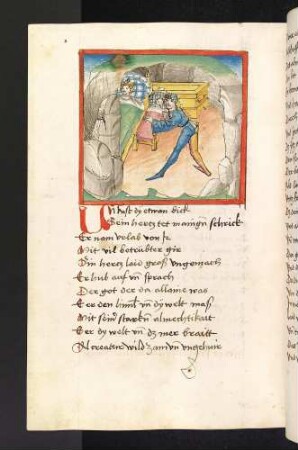 Vn kust dy etwan dick
Sein hertz tet maingn schrick
Er nam vrlab von Jr
Mit vil betrübter gir
Sin hertz laid groß vngemach
Er hub auf vn sprach
Der got der da allame was
Er den himl vn dy welt mass
Mit seinr starkn almechtikait
Der dy welt vn dz mer braitt
wild zam vn vngehuir